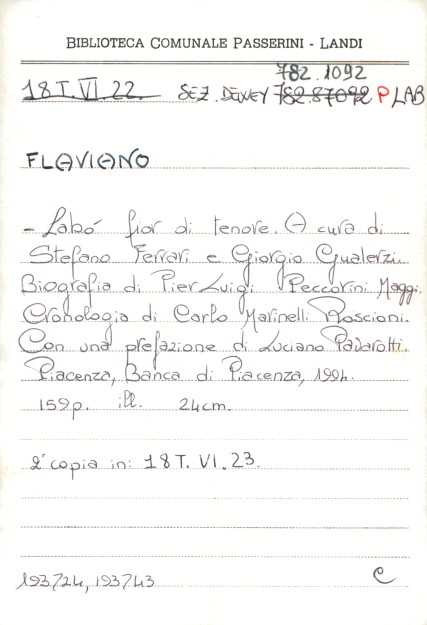 BIBLIOTECA COMUNALE PASSERINI - LANDI
782.1092
18 T. VI. 22. SEZ. DEWEY 782.87092 P LAB
FLAVIANO
- Labó fior di tenore. A cura di
Stefano Ferrari e Giorgio Gualerzi.
Biografia di Pier Luigi Peccorini Maggi.
Cronologia di Carlo Marinelli Roscioni.
Con una prefazione di Luciano Pavarotti.
Piacenza, Banca di Piacenza, 1994.
159p. ill. 24cm.
2ª copia in: 18 T. VI. 23.
193724, 193743 C